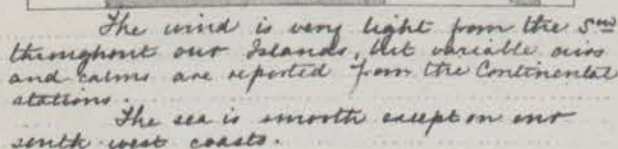 The wind is very light from the Swd
throughout our Islands, but variable airs
and calms are reported from the Continental
stations.
The sea is smooth except on our
south west coasts.